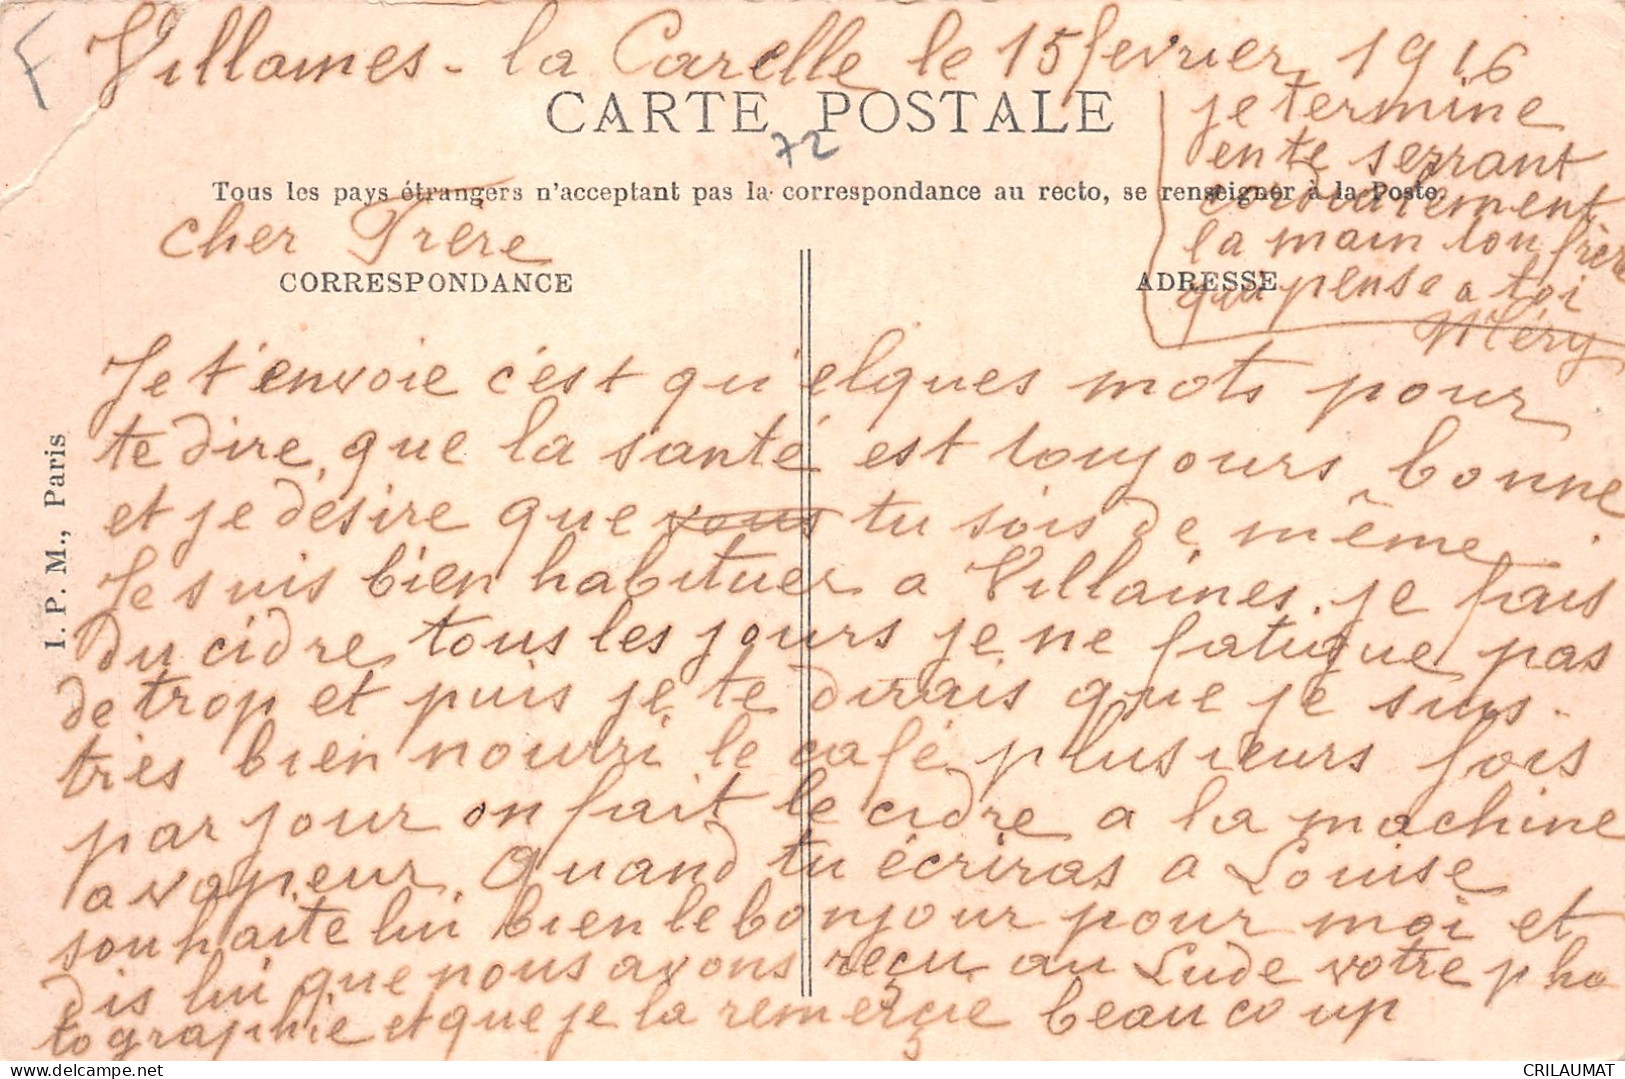 F
Villames - la Carelle le 15 fevrier 1916
CARTE POSTALE
72
Tous les pays étrangers n'acceptant pas la correspondance au recto, se renseigner à la Poste.
cher Frère
CORRESPONDANCE
ADRESSE
je termine
en te serrant
cordialement
la main ton frère
qui pense a toi
Méry
I. P. M., Paris
Je t'envoie c'est qu'elques mots pour
te dire, que la santé est toujours bonne
et je désire que vous tu sois de même.
Je suis bien habituer a Villaines. je fais
du cidre tous les jours je ne fatigue pas
de trop et puis je te dirais que je suis.
très bien nourri le café plusieurs fois
par jour on fait le cidre a la machine
a vapeur. Quand tu écriras a Louise
souhaite lui bien le bonjour pour moi et
dis lui que nous avons reçu au Lude votre pho
tographie et que je la remerçie beaucoup
delcampe.net
CRILAUMAT